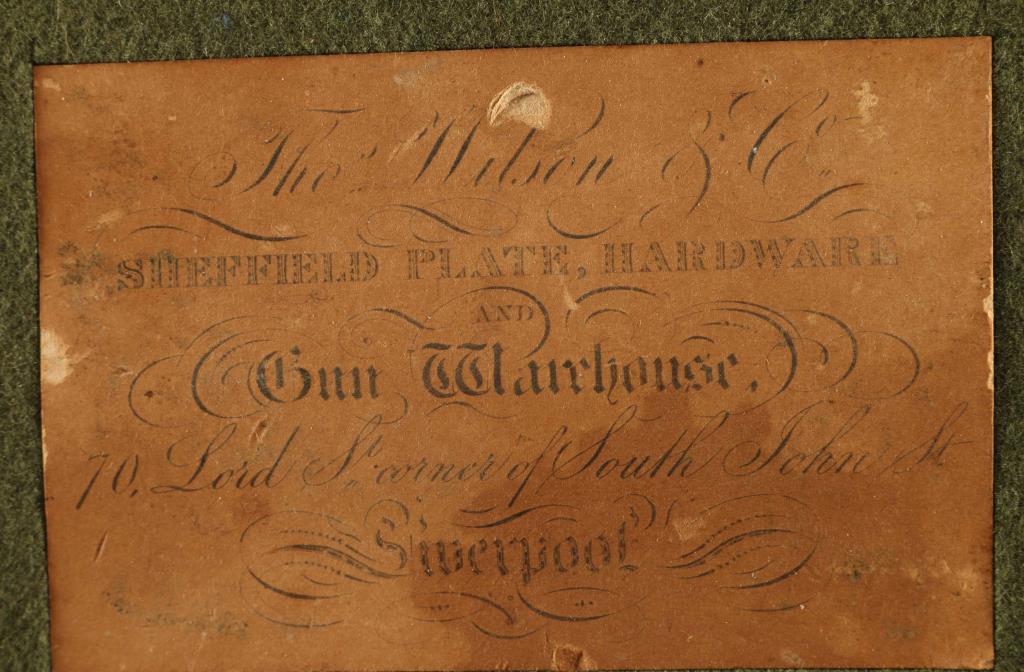 Thos. Wilson & Co.
SHEFFIELD PLATE, HARDWARE
AND
Gun Warehouse,
70, Lord St. corner of South John St
Liverpool